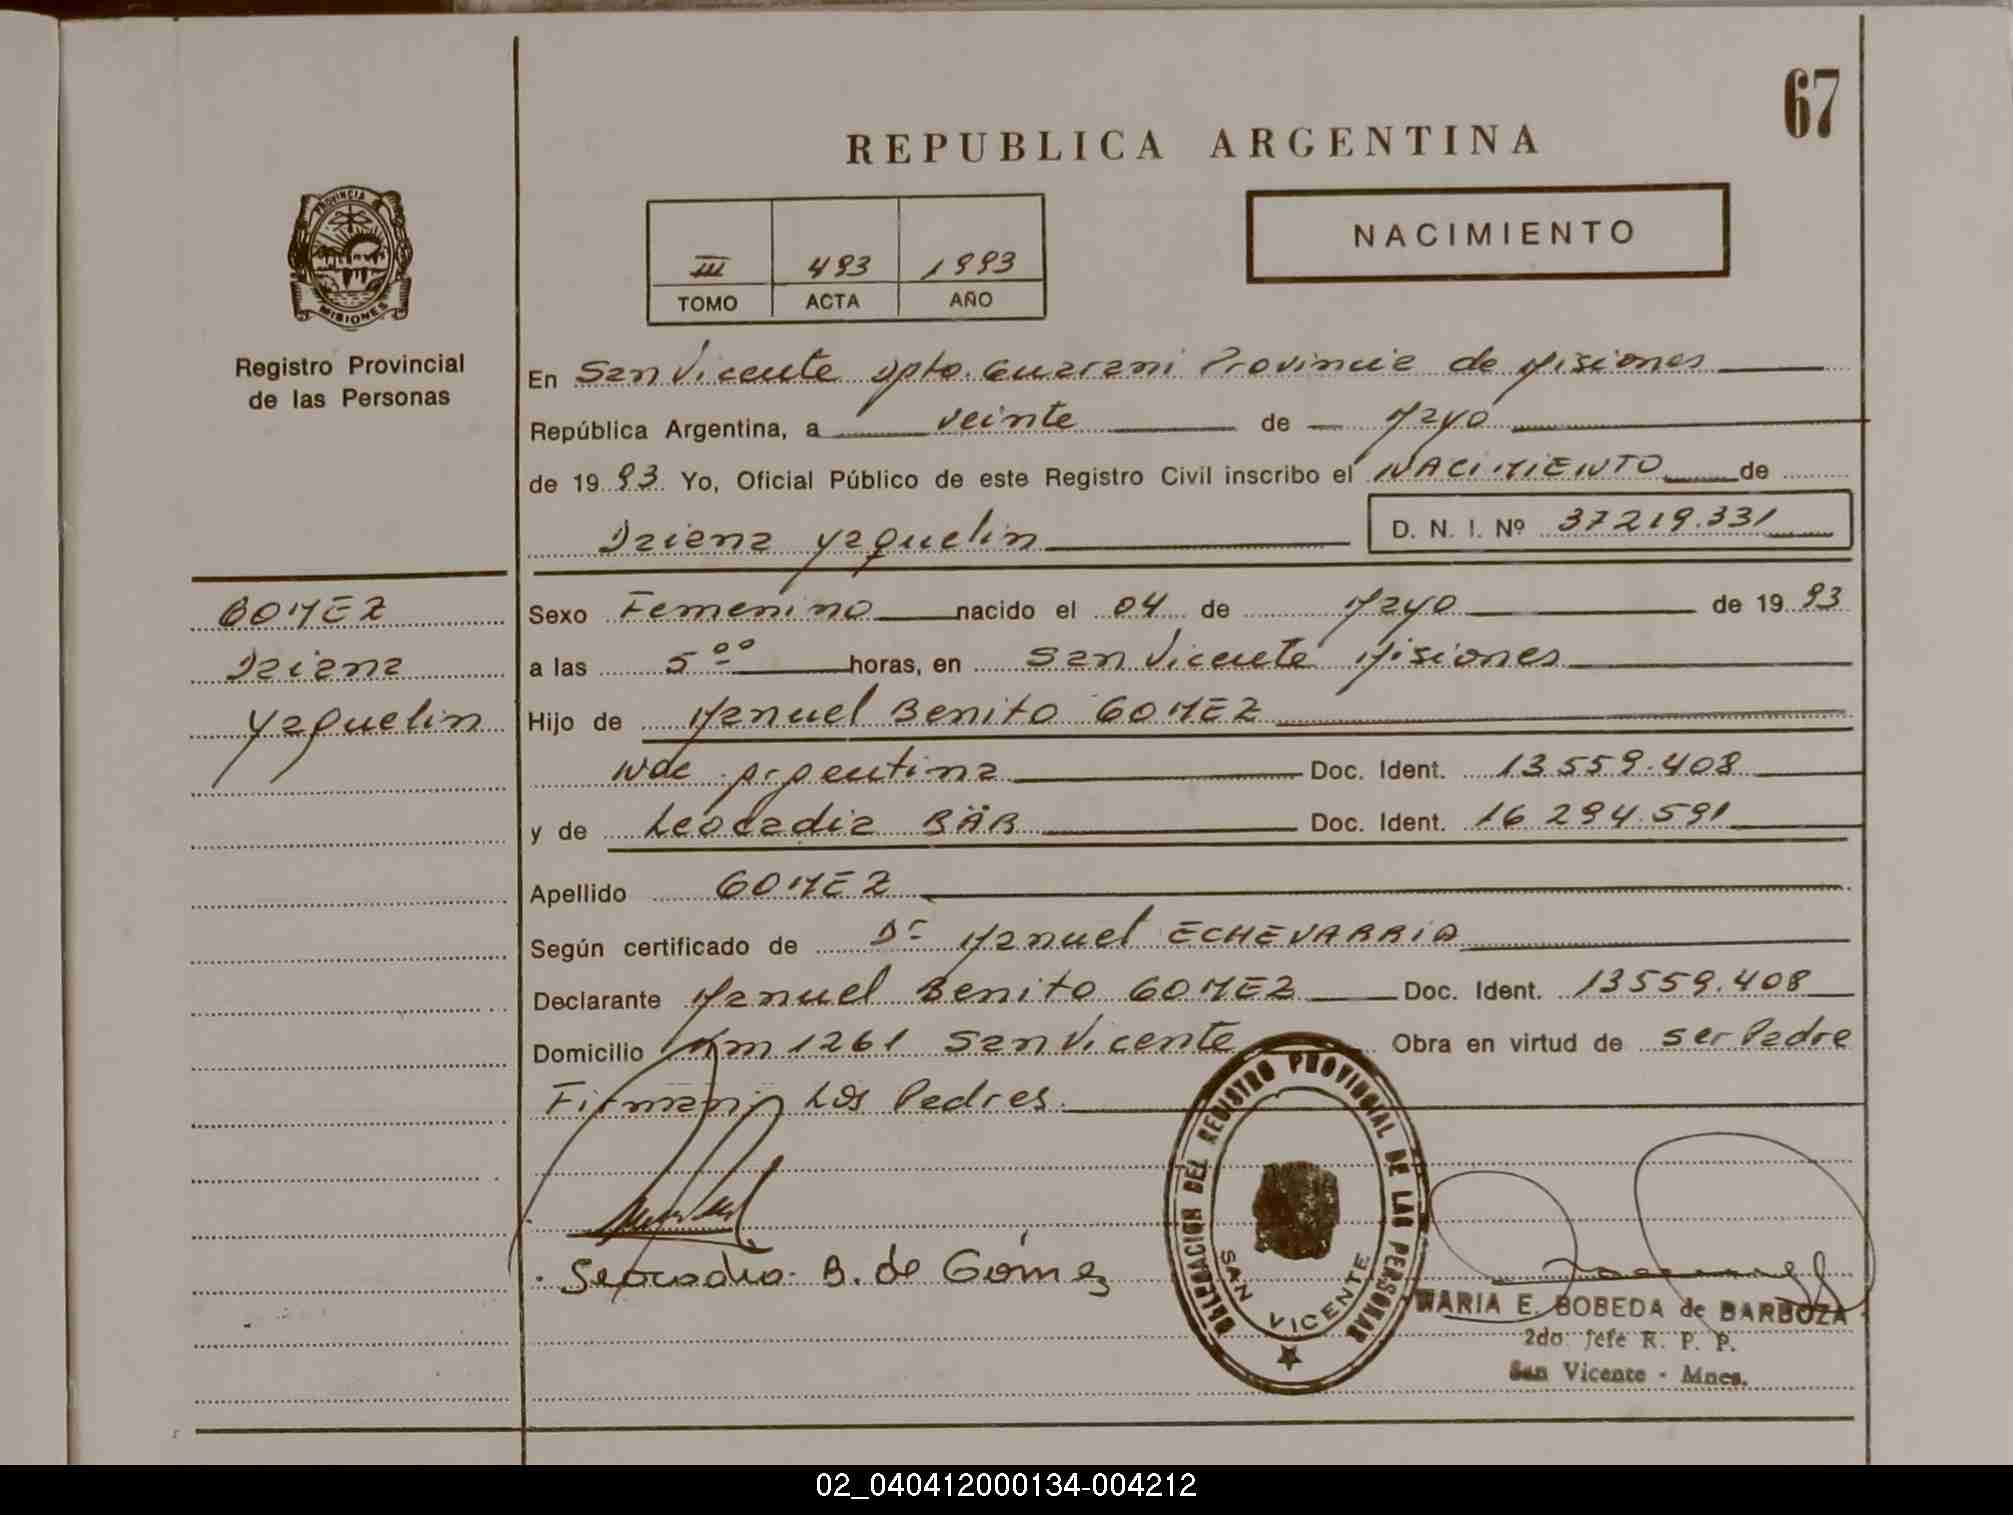 67
REPUBLICA ARGENTINA
PROVINCIA
MISIONES
Registro Provincial
de las Personas
III 493 1993
TOMO ACTA AÑO
NACIMIENTO
En San Vicente Dpto. Guarani Provincia de Misiones
República Argentina, a veinte de Mayo
de 1993 Yo, Oficial Público de este Registro Civil inscribo el NACIMIENTO de
Daiana Yaquelin D. N. I. Nº 37219.331
GOMEZ
Daiana
Yaquelin
Sexo Femenino nacido el 04 de Mayo de 1993
a las 5ºº horas, en San Vicente Misiones
Hijo de Manuel Benito GOMEZ
Nac. Argentina Doc. Ident. 13.559.408
y de Leocadia BÄR Doc. Ident. 16 294.591
Apellido GOMEZ
Según certificado de Dr Manuel ECHEVARRIA
Declarante Manuel Benito GOMEZ Doc. Ident. 13559.408
Domicilio Km 1261 San Vicente Obra en virtud de ser Padre
Firman Los Padres.
Leocadia B. de Gómez
DELEGACION DEL REGISTRO PROVINCIAL DE LAS PERSONAS
SAN VICENTE
MARIA E. BOBEDA de BARBOZA
2do Jefe R. P. P.
San Vicente - Mnes.
02_040412000134-004212